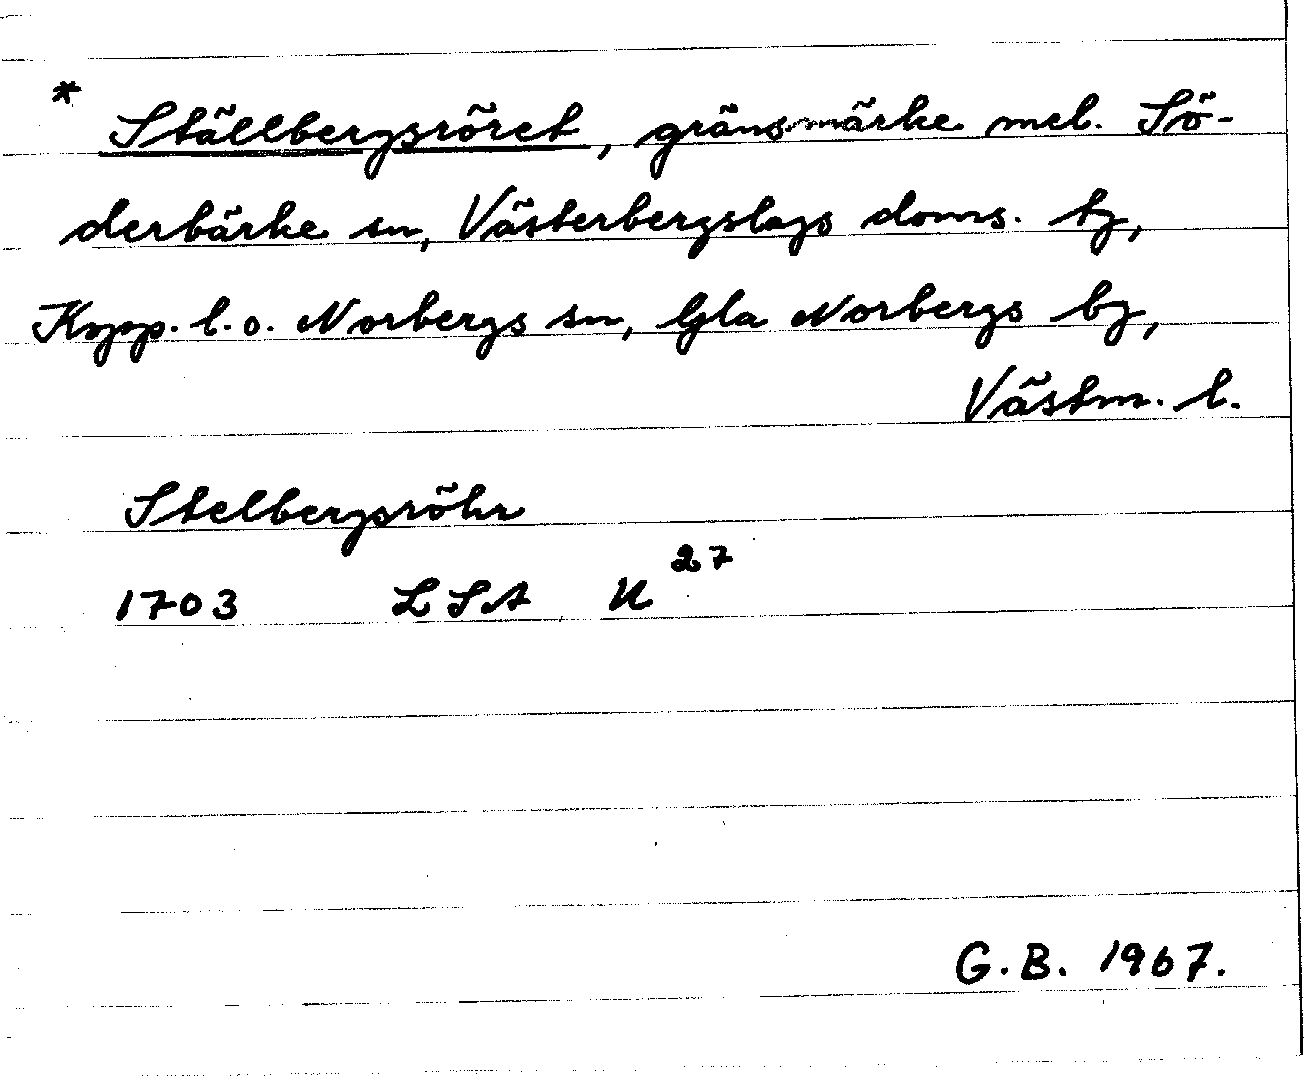 * Ställbergsröret, gränsmärke mel. Sö-
derbärke sn, Västerbergslags doms. bj,
Kopp. l. o. Norbergs sn, Gla Norbergs bj,
Västm. l.
Stelbergsröhr
1703 LSA U 27
G.B. 1967.